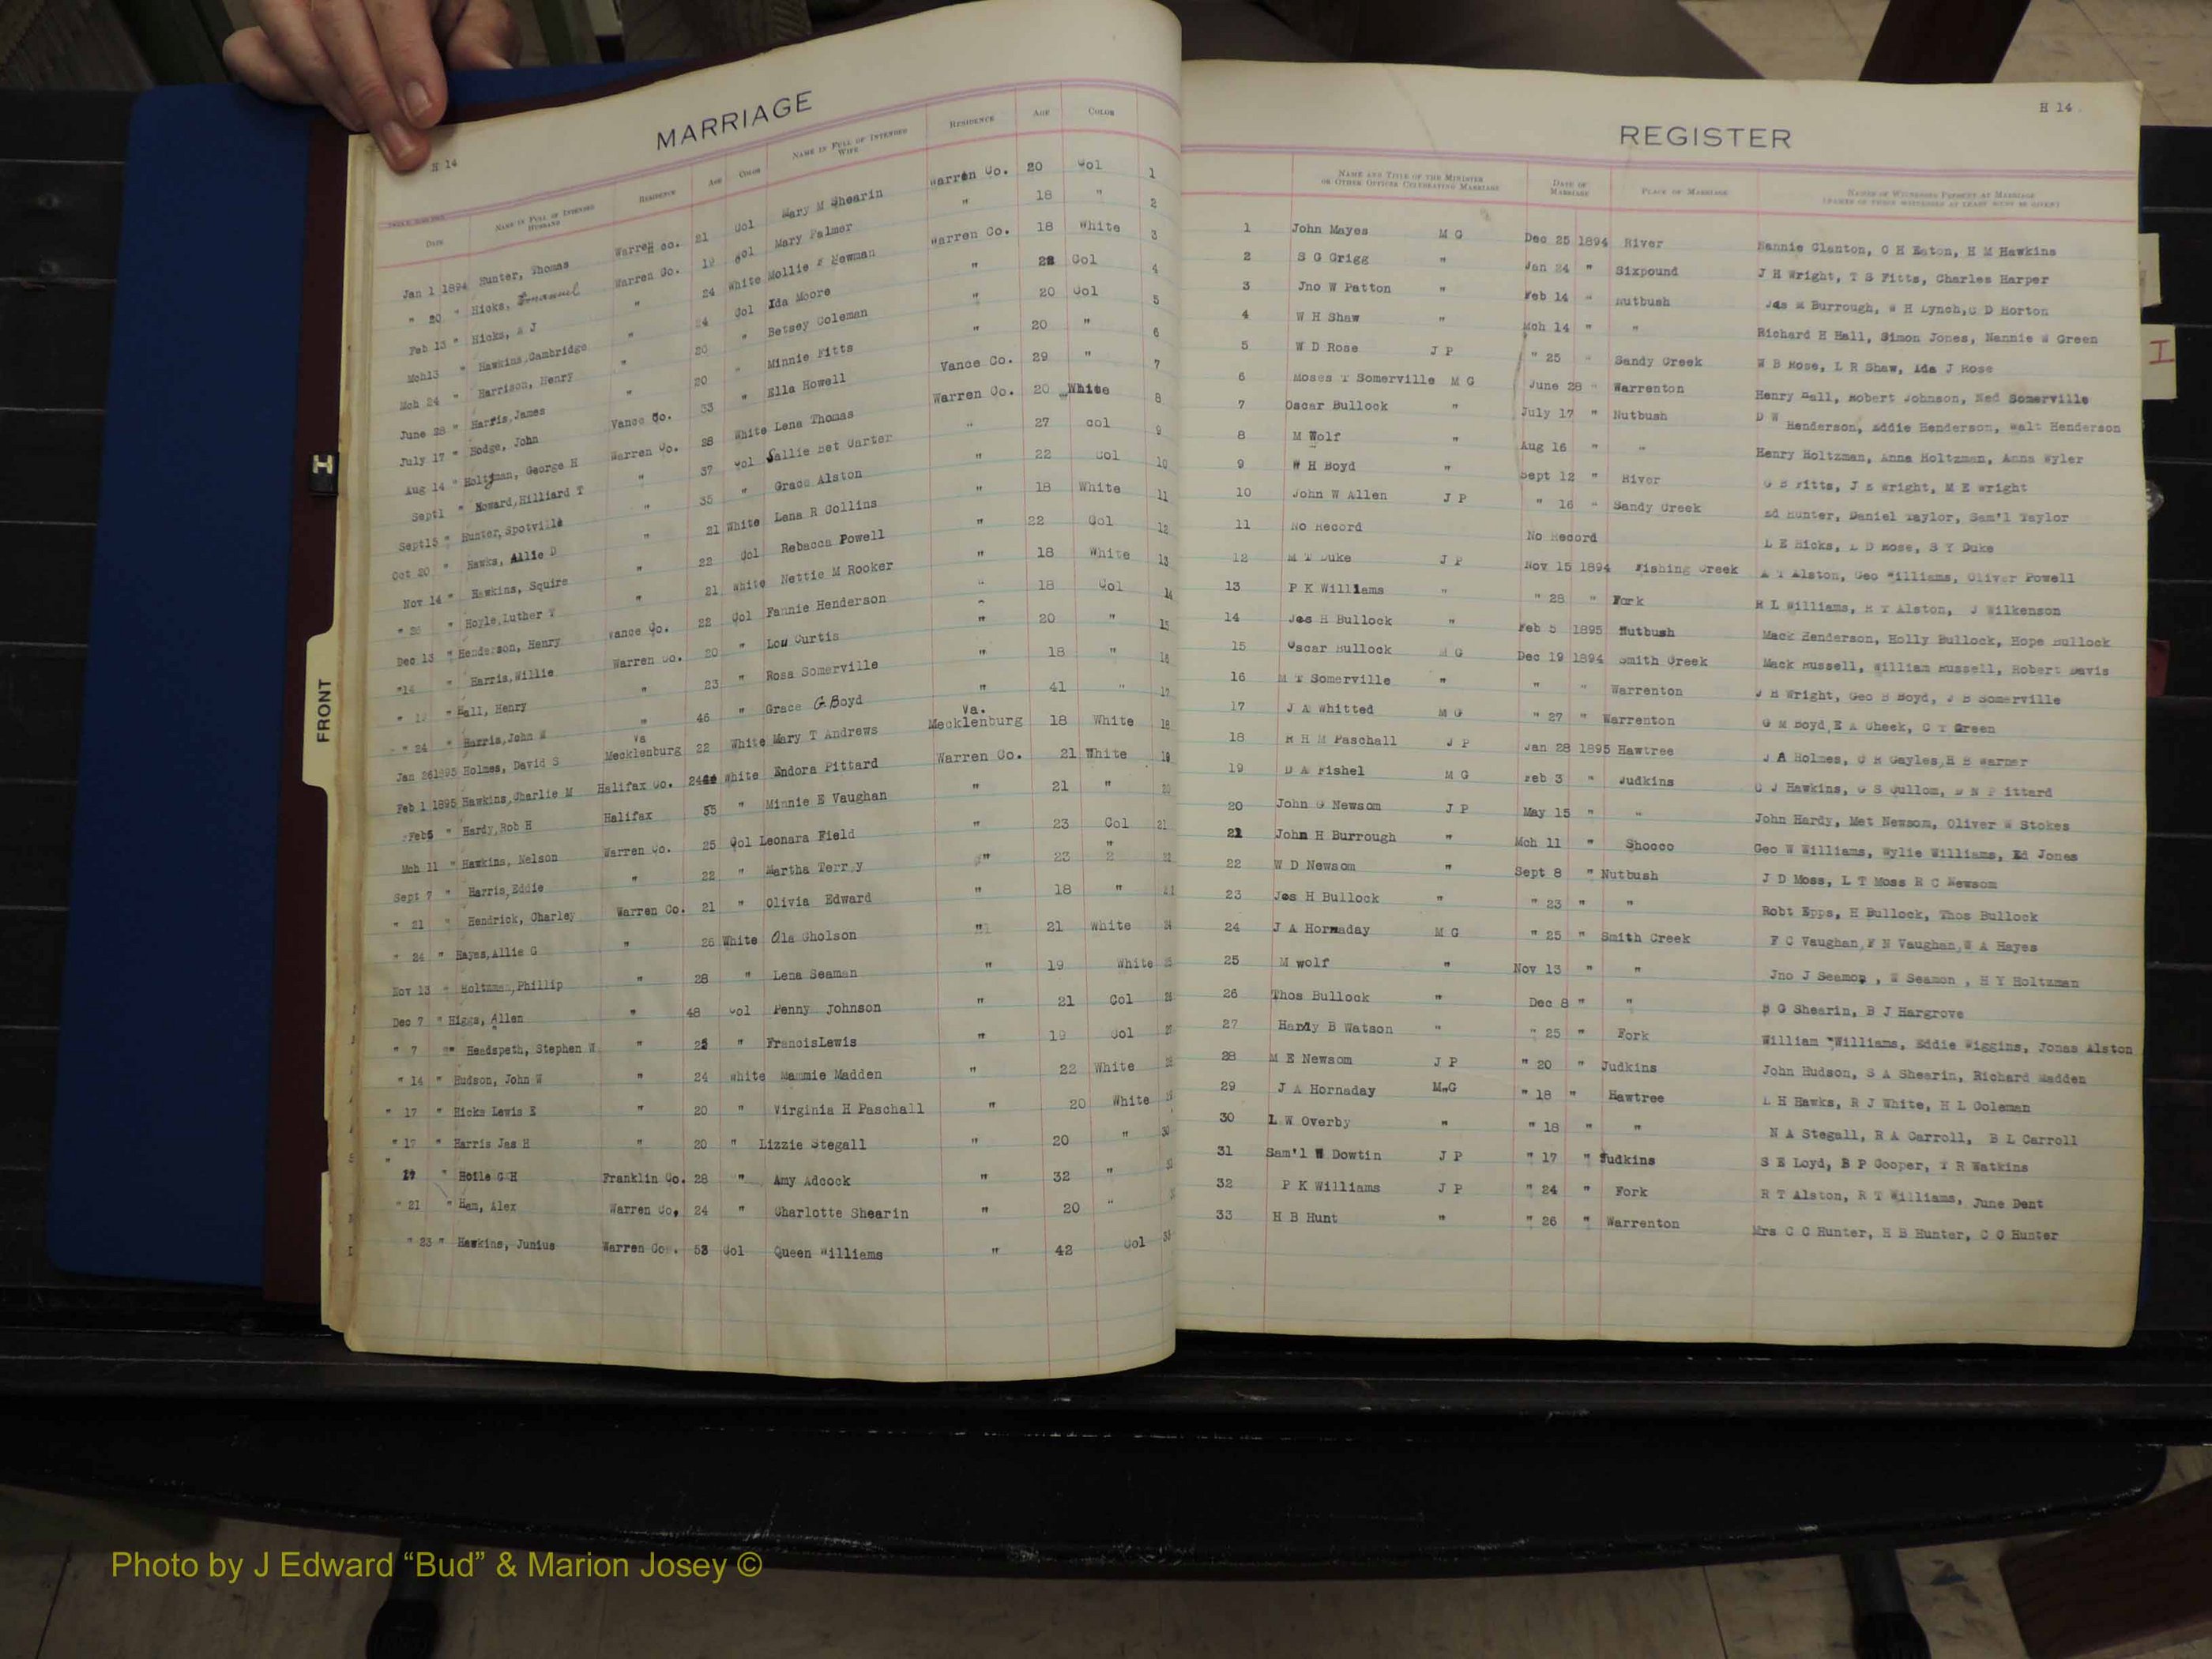 MARRIAGE
H 14
DATE NAME IN FULL OF INTENDED HUSBAND RESIDENCE AGE COLOR NAME IN FULL OF INTENDED WIFE RESIDENCE AGE COLOR
Jan 1 1894 Hunter, Thomas Warren co. 21 Col Mary M Shearin Warren Co. 20 Col 1
" 20 " Hicks, Emanuel Warren Co. 19 Col Mary Palmer " 18 " 2
Feb 13 " Hicks, E J " 24 White Mollie F Newman Warren Co. 18 White 3
Mch13 " Hawkins,Cambridge " 24 Col Ida Moore " 28 Col 4
Mch 24 " Harrison, Henry " 20 " Betsey Coleman " 20 Col 5
June 28 " Harris,James " 20 " Minnie Fitts " 20 " 6
July 17 " Hodge, John Vance Co. 33 " Ella Howell Vance Co. 29 " 7
Aug 14 " Holtzman, George H Warren Co. 28 White Lena Thomas Warren Co. 20 White 8
Sept1 " Howard,Hilliard T " 37 Col Sallie Bet Carter " 27 col 9
Sept15 " Hunter,Spotville " 35 " Grace Alston " 22 Col 10
Oct 20 " Hawks, Allie D " 21 White Lena R Collins " 18 White 11
Nov 14 " Hawkins, Squire " 22 Col Rebacca Powell " 22 Col 12
" 28 " Hoyle,Luther T " 21 White Nettie M Rooker " 18 White 13
Dec 13 " Henderson, Henry Vance Co. 22 Col Fannie Henderson " 18 Col 14
"18 " Harris,Willie Warren Co. 20 " Lou Curtis " 20 " 15
" 19 " Hall, Henry " 23 " Rosa Somerville " 18 " 16
" 24 " Harris,John W " 46 " Grace G Boyd " 41 " 17
Jan 261895 Holmes, David S Va Mecklenburg 22 White Mary T Andrews Va. Mecklenburg 18 White 18
Feb 1 1895 Hawkins,Charlie M Halifax Co. 24 White Endora Pittard Warren Co. 21 White 19
Feb5 " Hardy,Rob H Halifax 55 " Minnie E Vaughan " 21 " 20
Mch 11 " Hawkins, Nelson Warren Co. 25 Col Leonara Field " 23 Col 21
Sept 7 " Harris,Eddie " 22 " Martha Terry " 23 " 22
" 21 " Hendrick, Charley Warren Co. 21 " Olivia Edward " 18 "
" 24 " Hayes,Allie G " 26 White Ola Gholson " 21 White 24
Nov 13 " Holtzman,Phillip " 28 " Lena Seaman " 19 White 25
Dec 7 " Higgs, Allen " 48 Col Penny Johnson " 21 Col 26
" 7 " Headspeth, Stephen W " 25 " FrancisLewis " 19 Col
" 14 " Hudson, John W " 24 white Mammie Madden " 22 White
" 17 " Hicks Lewis E " 20 " Virginia H Paschall " 20 White
" 19 " Harris Jas H " 20 " Lizzie Stegall " 20 " 30
" " Hofle G H Franklin Co. 28 " Amy Adcock " 32 "
" 21 " Ham, Alex Warren Co. 24 " Charlotte Shearin " 20 "
" 23 " Hawkins, Junius Warren Co. 53 Col Queen Williams " 42 Col
REGISTER
H 14
NAME AND TITLE OF THE MINISTER OR OTHER OFFICER CELEBRATING MARRIAGE DATE OF MARRIAGE PLACE OF MARRIAGE NAMES OF WITNESSES PRESENT AT MARRIAGE (NAMES OF THREE WITNESSES AT LEAST MUST BE GIVEN)
1 John Mayes M G Dec 25 1894 River Nannie Clanton, O H Eaton, H M Hawkins
2 S G Grigg " Jan 24 " Sixpound J H Wright, T S Fitts, Charles Harper
3 Jno W Patton " Feb 14 " Nutbush Jas M Burrough, W H Lynch,C D Horton
4 W H Shaw " Mch 14 " " Richard H Hall, Simon Jones, Nannie W Green
5 W D Rose J P " 25 " Sandy Creek W B Rose, L R Shaw, Ida J Rose
6 Moses T Somerville M G June 28 " Warrenton Henry Hall, Robert Johnson, Ned Somerville
7 Oscar Bullock " July 17 " Nutbush D W Henderson, Eddie Henderson, Walt Henderson
8 M Wolf " Aug 16 " " Henry Holtzman, Anna Holtzman, Anna Wyler
9 W H Boyd " Sept 12 " River G B Fitts, J E Wright, M E Wright
10 John W Allen J P " 16 " Sandy Creek Ed Hunter, Daniel Taylor, Sam'l Taylor
11 No Record No Record L E Hicks, L D Rose, S Y Duke
12 M T Duke J P Nov 15 1894 Fishing Creek A T Alston, Geo Williams, Oliver Powell
13 P K Williams " " 28 " Fork R L Williams, R Y Alston, J Wilkenson
14 Jos H Bullock " Feb 5 1895 Nutbush Mack Henderson, Holly Bullock, Hope Bullock
15 Oscar Bullock M G Dec 19 1894 Smith Creek Mack Russell, William Russell, Robert Davis
16 M T Somerville " " " Warrenton J H Wright, Geo B Boyd, J B Somerville
17 J A Whitted M G " 27 " Warrenton G M Boyd,E A Cheek, C T Green
18 R H M Paschall J P Jan 28 1895 Hawtree J A Holmes, C R Gayles,H B Warner
19 D A Fishel M G Feb 3 " Judkins C J Hawkins, G S Cullom, D N Pittard
20 John G Newsom J P May 15 " " John Hardy, Met Newsom, Oliver W Stokes
21 John H Burrough " Mch 11 " Shocco Geo W Williams, Wylie Williams, Ed Jones
22 W D Newsom " Sept 8 " Nutbush J D Moss, L T Moss R C Newsom
23 Jos H Bullock " " 23 " " Robt Epps, H Bullock, Thos Bullock
24 J A Hornaday M G " 25 " Smith Creek F C Vaughan,F N Vaughan,W A Hayes
25 M wolf " Nov 13 " " Jno J Seamon , W Seamon , H Y Holtzman
26 Thos Bullock " Dec 8 " " B G Shearin, B J Hargrove
27 Hardy B Watson " " 25 " Fork William Williams, Eddie Wiggins, Jonas Alston
28 M E Newsom J P " 20 " Judkins John Hudson, S A Shearin, Richard Madden
29 J A Hornaday M G " 18 " Hawtree L H Hawks, R J White, H L Coleman
30 L W Overby " " 18 " " N A Stegall, R A Carroll, B L Carroll
31 Sam'l W Dowtin J P " 17 " Judkins S E Loyd, B P Cooper, T R Watkins
32 P K Williams J P " 24 " Fork R T Alston, R T Williams, June Dent
33 H B Hunt " " 26 " Warrenton Mrs C C Hunter, H B Hunter, C C Hunter
H
FRONT
I
Photo by J Edward “Bud” & Marion Josey ©